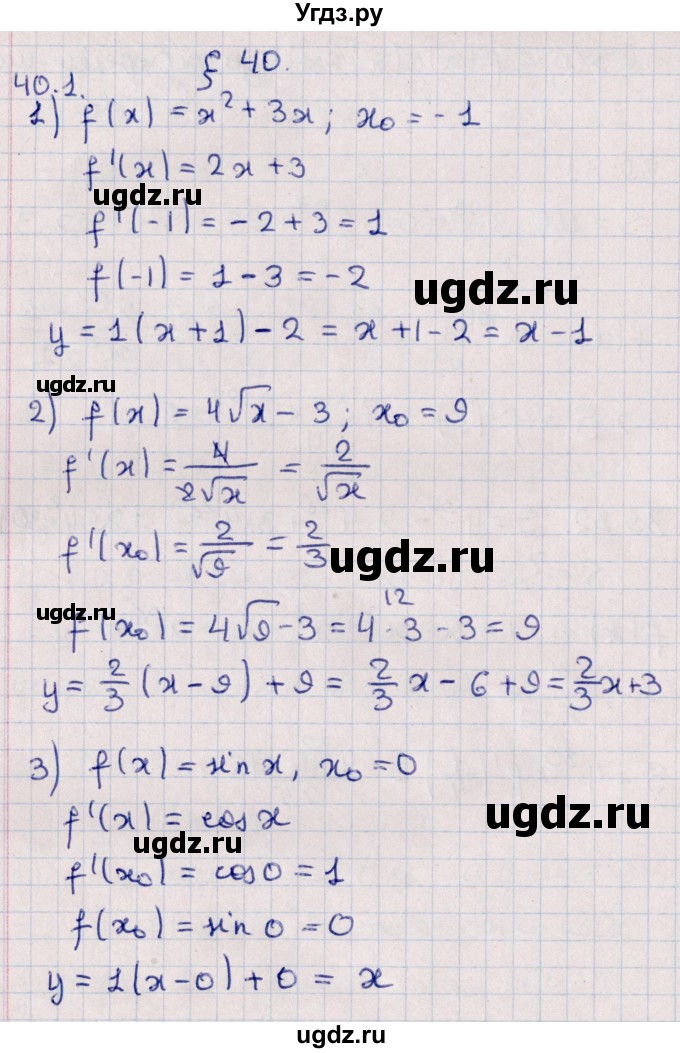 Угдз.ру
§ 40.
40.1.
1) f(x) = x² + 3x; x₀ = -1
f'(x) = 2x + 3
ugdz.ru
f'(-1) = -2 + 3 = 1
f(-1) = 1 - 3 = -2
ugdz.ru
y = 1(x + 1) - 2 = x + 1 - 2 = x - 1
ugdz.ru
2) f(x) = 4√x - 3; x₀ = 9
f'(x) = 4/(2√x) = 2/√x
f'(x₀) = 2/√9 = 2/3
ugdz.ru
ugdz.ru
12
f(x₀) = 4√9 - 3 = 4 · 3 - 3 = 9
y = 2/3 (x - 9) + 9 = 2/3 x - 6 + 9 = 2/3 x + 3
3) f(x) = sin x, x₀ = 0
ugdz.ru
f'(x) = cos x
ugdz.ru
f'(x₀) = cos 0 = 1
f(x₀) = sin 0 = 0
y = 1(x - 0) + 0 = x
ugdz.ru